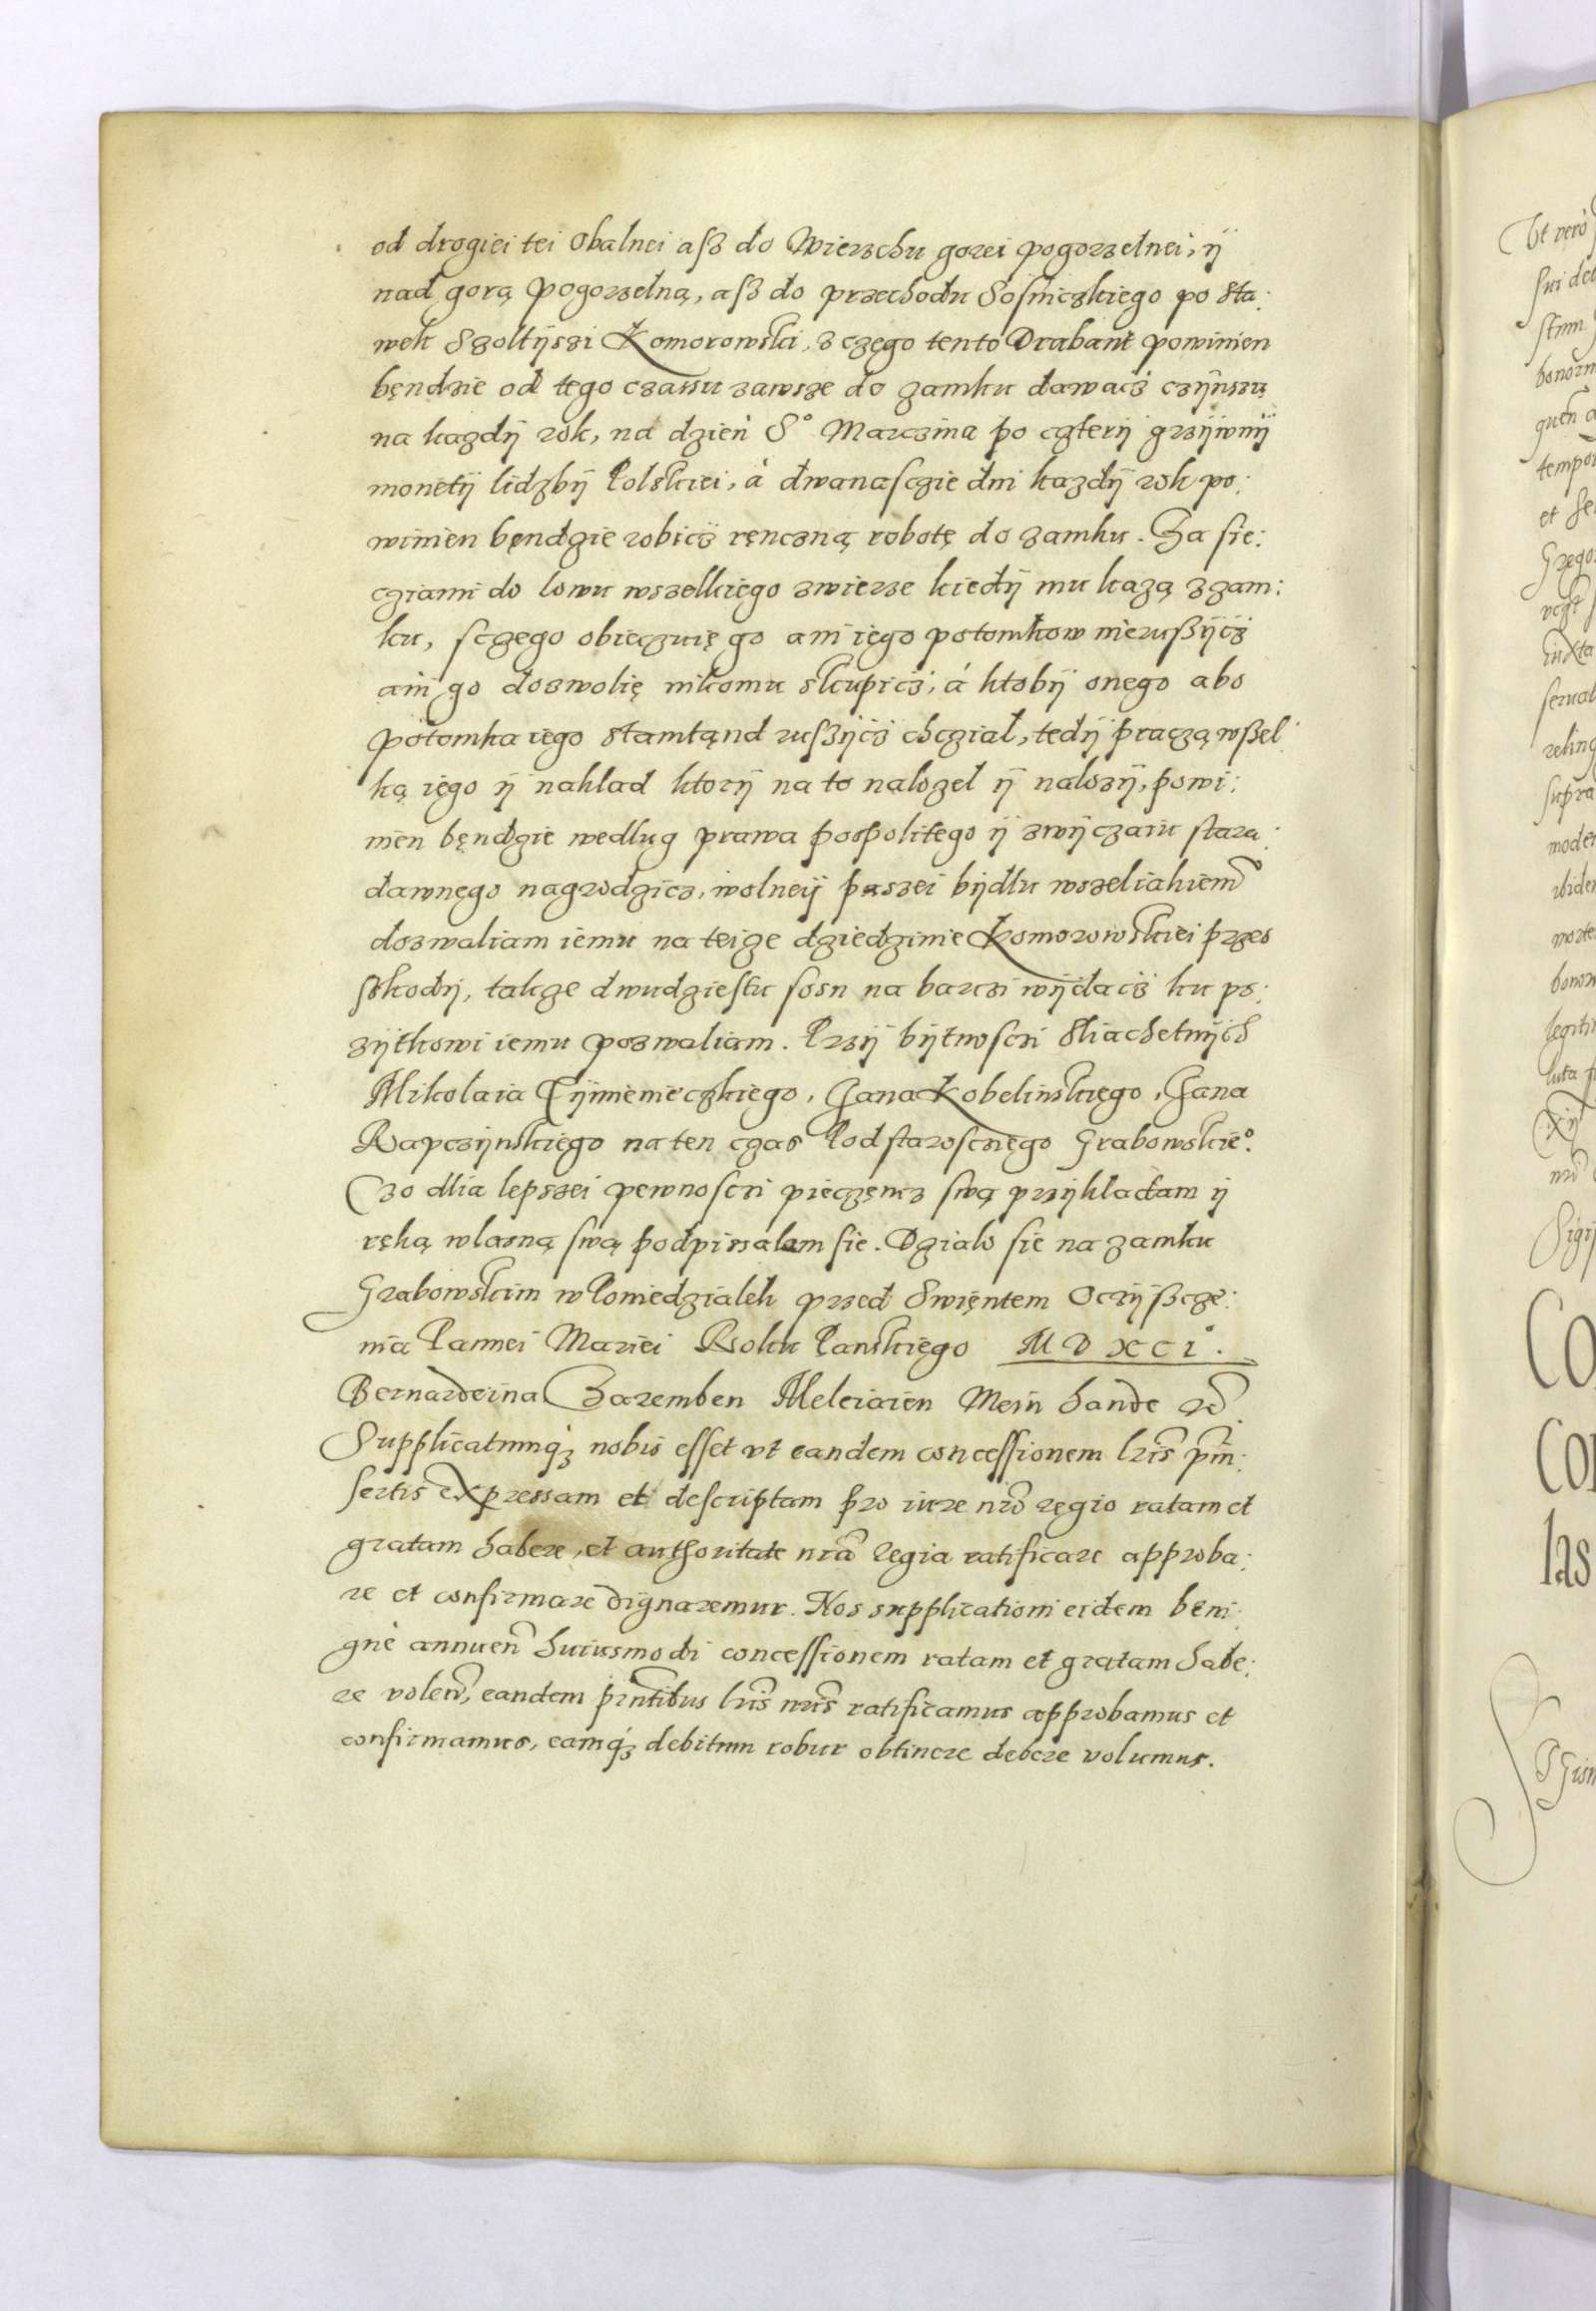 od drogiei tei obalnei asz do Wierzchu gorei pogorzelnei, ÿ
nad gorą Pogorzelną, asz do przechodu Sosniczkiego po sta:
wek Szoltÿszi Komorowski, z czego tento Drabant powinien
bęndzie od tego czassu zawsze do zamku dawacz czÿnszu
na kazdÿ rok, na dzien Sº Marczina po czterÿ grzÿwnÿ
monetÿ lidzbÿ Polskiei, à dwanasczie dni kazdÿ rok po:
winien bęndzie robicz ręnczną robotę do zamku. Za sie:
cziami do lowu wszelkiego zwierze kiedÿ mu kazą z zam:
ku, sczego obieczuię go ani iego potomkow nieruszÿcz
ani go dozwolię nikomu skupicz, á ktobÿ onego abo
potomka iego stamtąnd ruszÿcz chczial, tedÿ praczą wszel
ką iego ÿ naklad ktorÿ na to nalozel ÿ nalozÿ, powi:
nien bęndzie wedlug prawa pospolitego ÿ zwÿczaiu stara:
dawnego nagrodzicz, wolneÿ paszei bÿdlu wszeliakiem
dozwaliam iemu na teize dziedzinie Komorowskiei przes
szkodÿ, takze dwudziestu sosn na barczi wÿdacz ku po:
zÿtkowi iemu pozwaliam. Przÿ bÿtnosczi Sliachetnÿch
Mikolaia Cÿmiemieczkiego, Jana Kobelinskiego, Jana
Rapczÿnskiego na ten czas Podstarosczego Grabowskieº.
Czo dlia lepszei pewnosczi pieczęncz swą przÿkladam ÿ
ręką wlasną swą podpissalam sie. Dzialo sie na zamku
Grabowskim w Poniedzialek przed Swięntem Oczÿszcze:
nia Pannei Mariei Roku Panskiego MDXCIº.
Bernardeina Zaremben Meleiaien Mein hande
Supplicatumq́ꝫ nobis esset vt eandem concessionem lr̃is p̃in:
sertis expressam et descriptam pro iure nr̃o regio ratam et
gratam habere, et authoritate nr̃a Regia ratificare approba:
re et confirmare dignaremur. Nos supplicationi eidem beni:
gnè annuen̄ huiusmodi concessionem ratam et gratam habe:
re volen̄, eandem prn̄tibus lr̃is nr̃is ratificamus approbamus et
confirmamus, eamq́ꝫ debitum robur obtinere debere volumus.